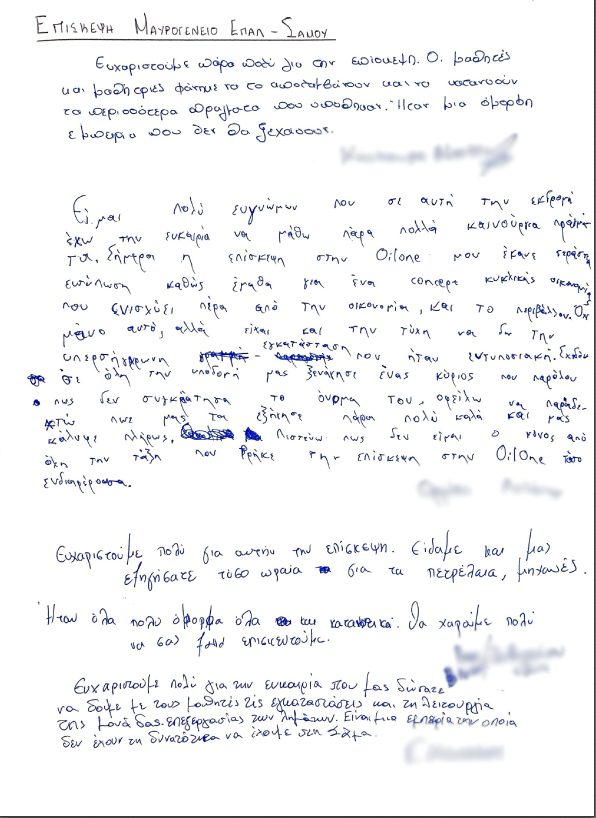 ΕΠΙΣΚΕΨΗ ΜΑΥΡΟΓΕΝΕΙΟ ΕΠΑΛ - ΣΑΜΟΥ
Ευχαριστούμε πάρα πολύ για την επίσκεψη. Οι μαθητές
και μαθήτριες φάνηκε να το απολαμβάνουν και να κατανοούν
τα περισσότερα πράγματα που υπόθηκαν. Ήταν μια όμορφη
εμπειρία που δεν θα ξεχάσουν.
Είμαι πολύ ευγνώμων που σε αυτή την εκδρομή
έχω την ευκαιρία να μάθω πάρα πολλά καινούργια πράγμα-
τα. Σήμερα η επίσκεψη στην Oilone μου έκανε τεράστια
εντύπωση καθώς έμαθα για ένα concept κυκλικής οικονομίας
που ενισχύει πέρα από την οικονομία, και το περιβάλλον. Όχι
μόνο αυτό, αλλά είχαι και την τύχη να δω την
υπερσύγχρονη εγκατάσταση που ήταν εντυπωσιακή. Σχεδόν
σε όλη την υποδομή μας ξενάγησε ένας κύριος που παρόλου
πως δεν συγκράτησα το όνομα του, οφείλω να παραδε-
χτώ πως μας τα εξήγησε πάρα πολύ καλά και μας
κάλυψε πλήρως. Πιστεύω πως δεν είμαι ο μόνος από
όλη την τάξη που βρήκε την επίσκεψη στην OilOne τόσο
ενδιαφέρουσα.
Ευχαριστούμε πολύ για αυτήν την επίσκεψη. Είδαμε και μας
εξηγήσατε τόσο ωραία για τα πετρέλαια, μηχανές.
Ήταν όλα πολυ όμορφα όλα και κατανοητικά. Θα χαρούμε πολύ
να σας επισκευτούμε.
Ευχαριστούμε πολύ για την ευκαιρία που μας δώσατε
να δούμε με τους μαθητές τις εγκαταστάσεις και τη λειτουργία
της μονάδας επεξεργασίας των λημάτων. Είναι μια εμπειρία την οποία
δεν έχουν τη δυνατότητα να έχουμε στη Σάμο.